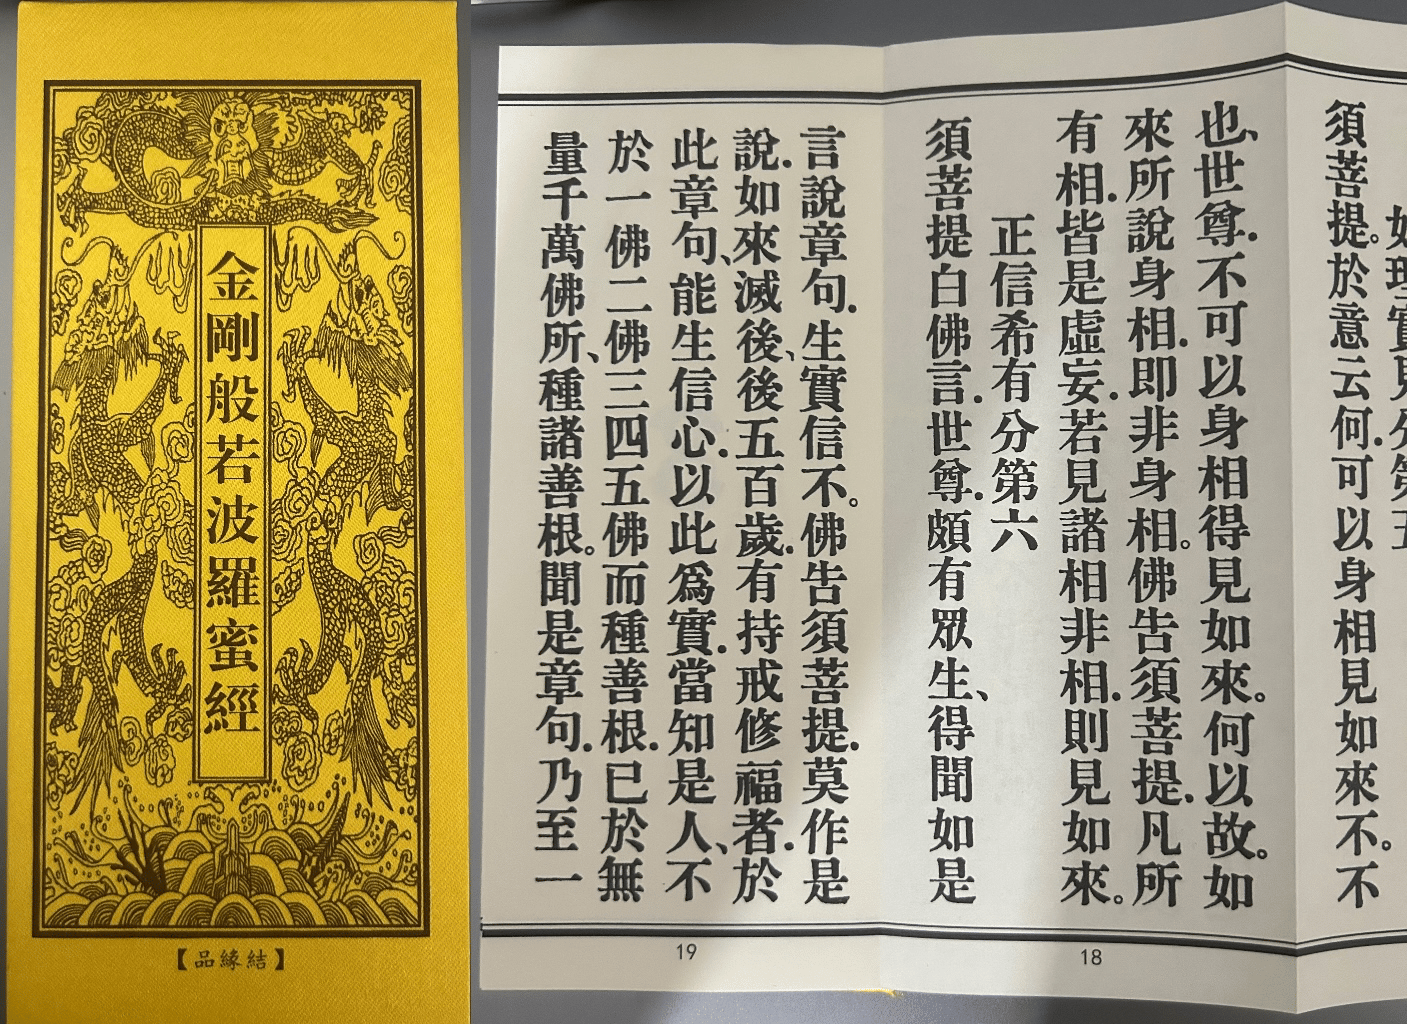 金剛般若波羅蜜經
【品緣結】
須菩提。於意云何.可以身相見如來不。不
也、世尊.不可以身相得見如來。何以故。如
來所說身相.即非身相。佛告須菩提.凡所
有相.皆是虛妄.若見諸相非相.則見如來。
正信希有分第六
須菩提白佛言.世尊.頗有眾生、得聞如是
18
言說章句.生實信不。佛告須菩提.莫作是
說.如來滅後、後五百歲.有持戒修福者.於
此章句、能生信心.以此為實.當知是人、不
於一佛二佛三四五佛而種善根.已於無
量千萬佛所、種諸善根。聞是章句.乃至一
19